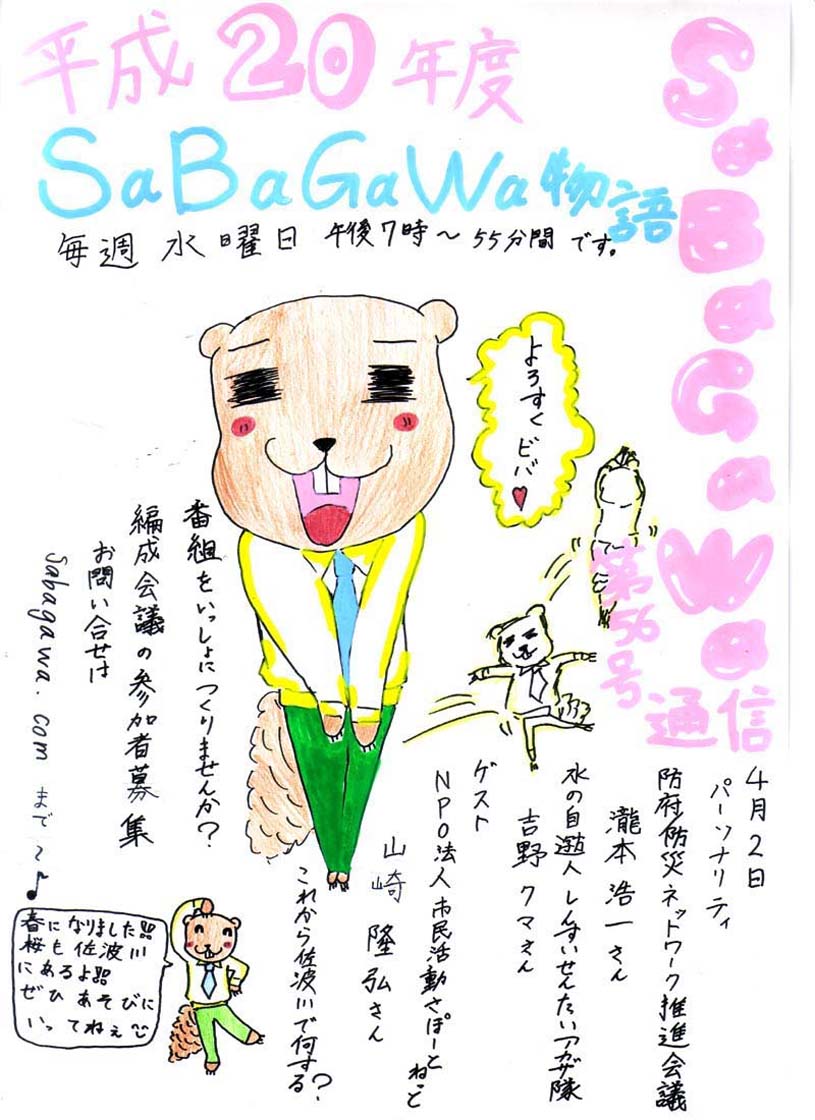 平成20年度
SaBaGaWa物語
毎週 水曜日 午後7時～55分間です。
SaBaGaWa
通信
第56号
よろすく
ビバ♥
4月2日
パーソナリティ
防府防災ネットワーク推進会議
瀧本 浩一さん
水の自遊人しんすいせんたいアカザ隊
吉野 クマさん
ゲスト
NPO法人市民活動さぽーとねっと
山崎 隆弘さん
これから佐波川で何する?
番組をいっしょにつくりませんか?
編成会議の参加者募集
お問い合せは
sabagawa.com まで～♪
春になりました!!
桜も佐波川
にあるよ!!
ぜひあそびに
いってねぇ